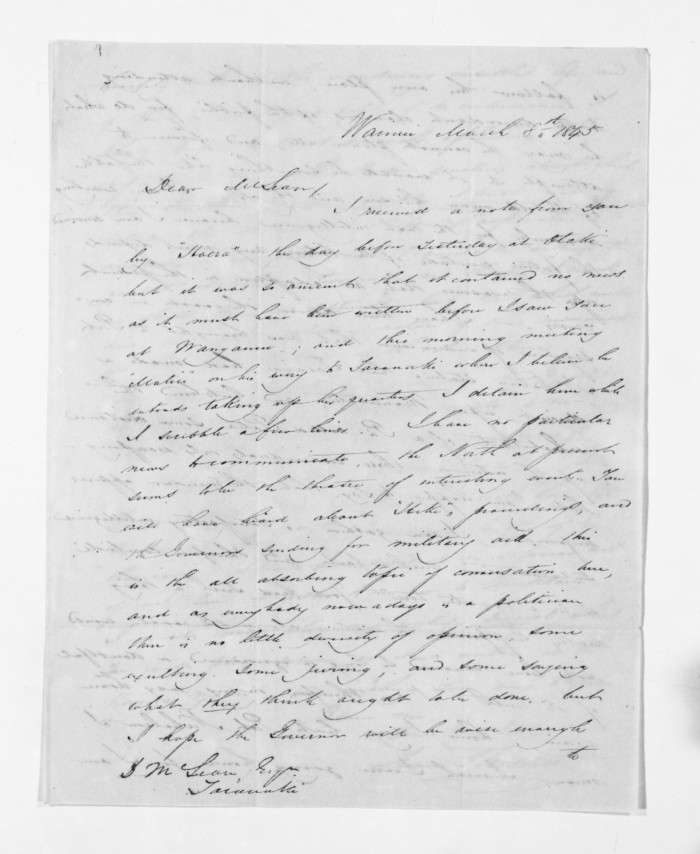 March 8th 1845
Dear McLean,
I received a note from you
by "Hoera" the day before yesterday at Otaki
but it was so ancient that it contained no news
as it must have been written before I saw you
at Wanganui; and this morning meeting
on his way to Taranaki where I believe he
intends taking up his quarters I detain him while
I scribble a few lines. I have no particular
news to communicate, the North at present
seems to be the theatre of interesting events. You
will have heard about "Heke's" proceedings, and
the Governors sending for military aid. This
is the all absorbing topic of conversation here,
and as everybody now a days is a politician
there is no little diversity of opinion, some
exulting some, and some saying
what they think ought to be done. but
I hope the Governor will be wise enough
to
D McLean, Esqr.
Taranaki